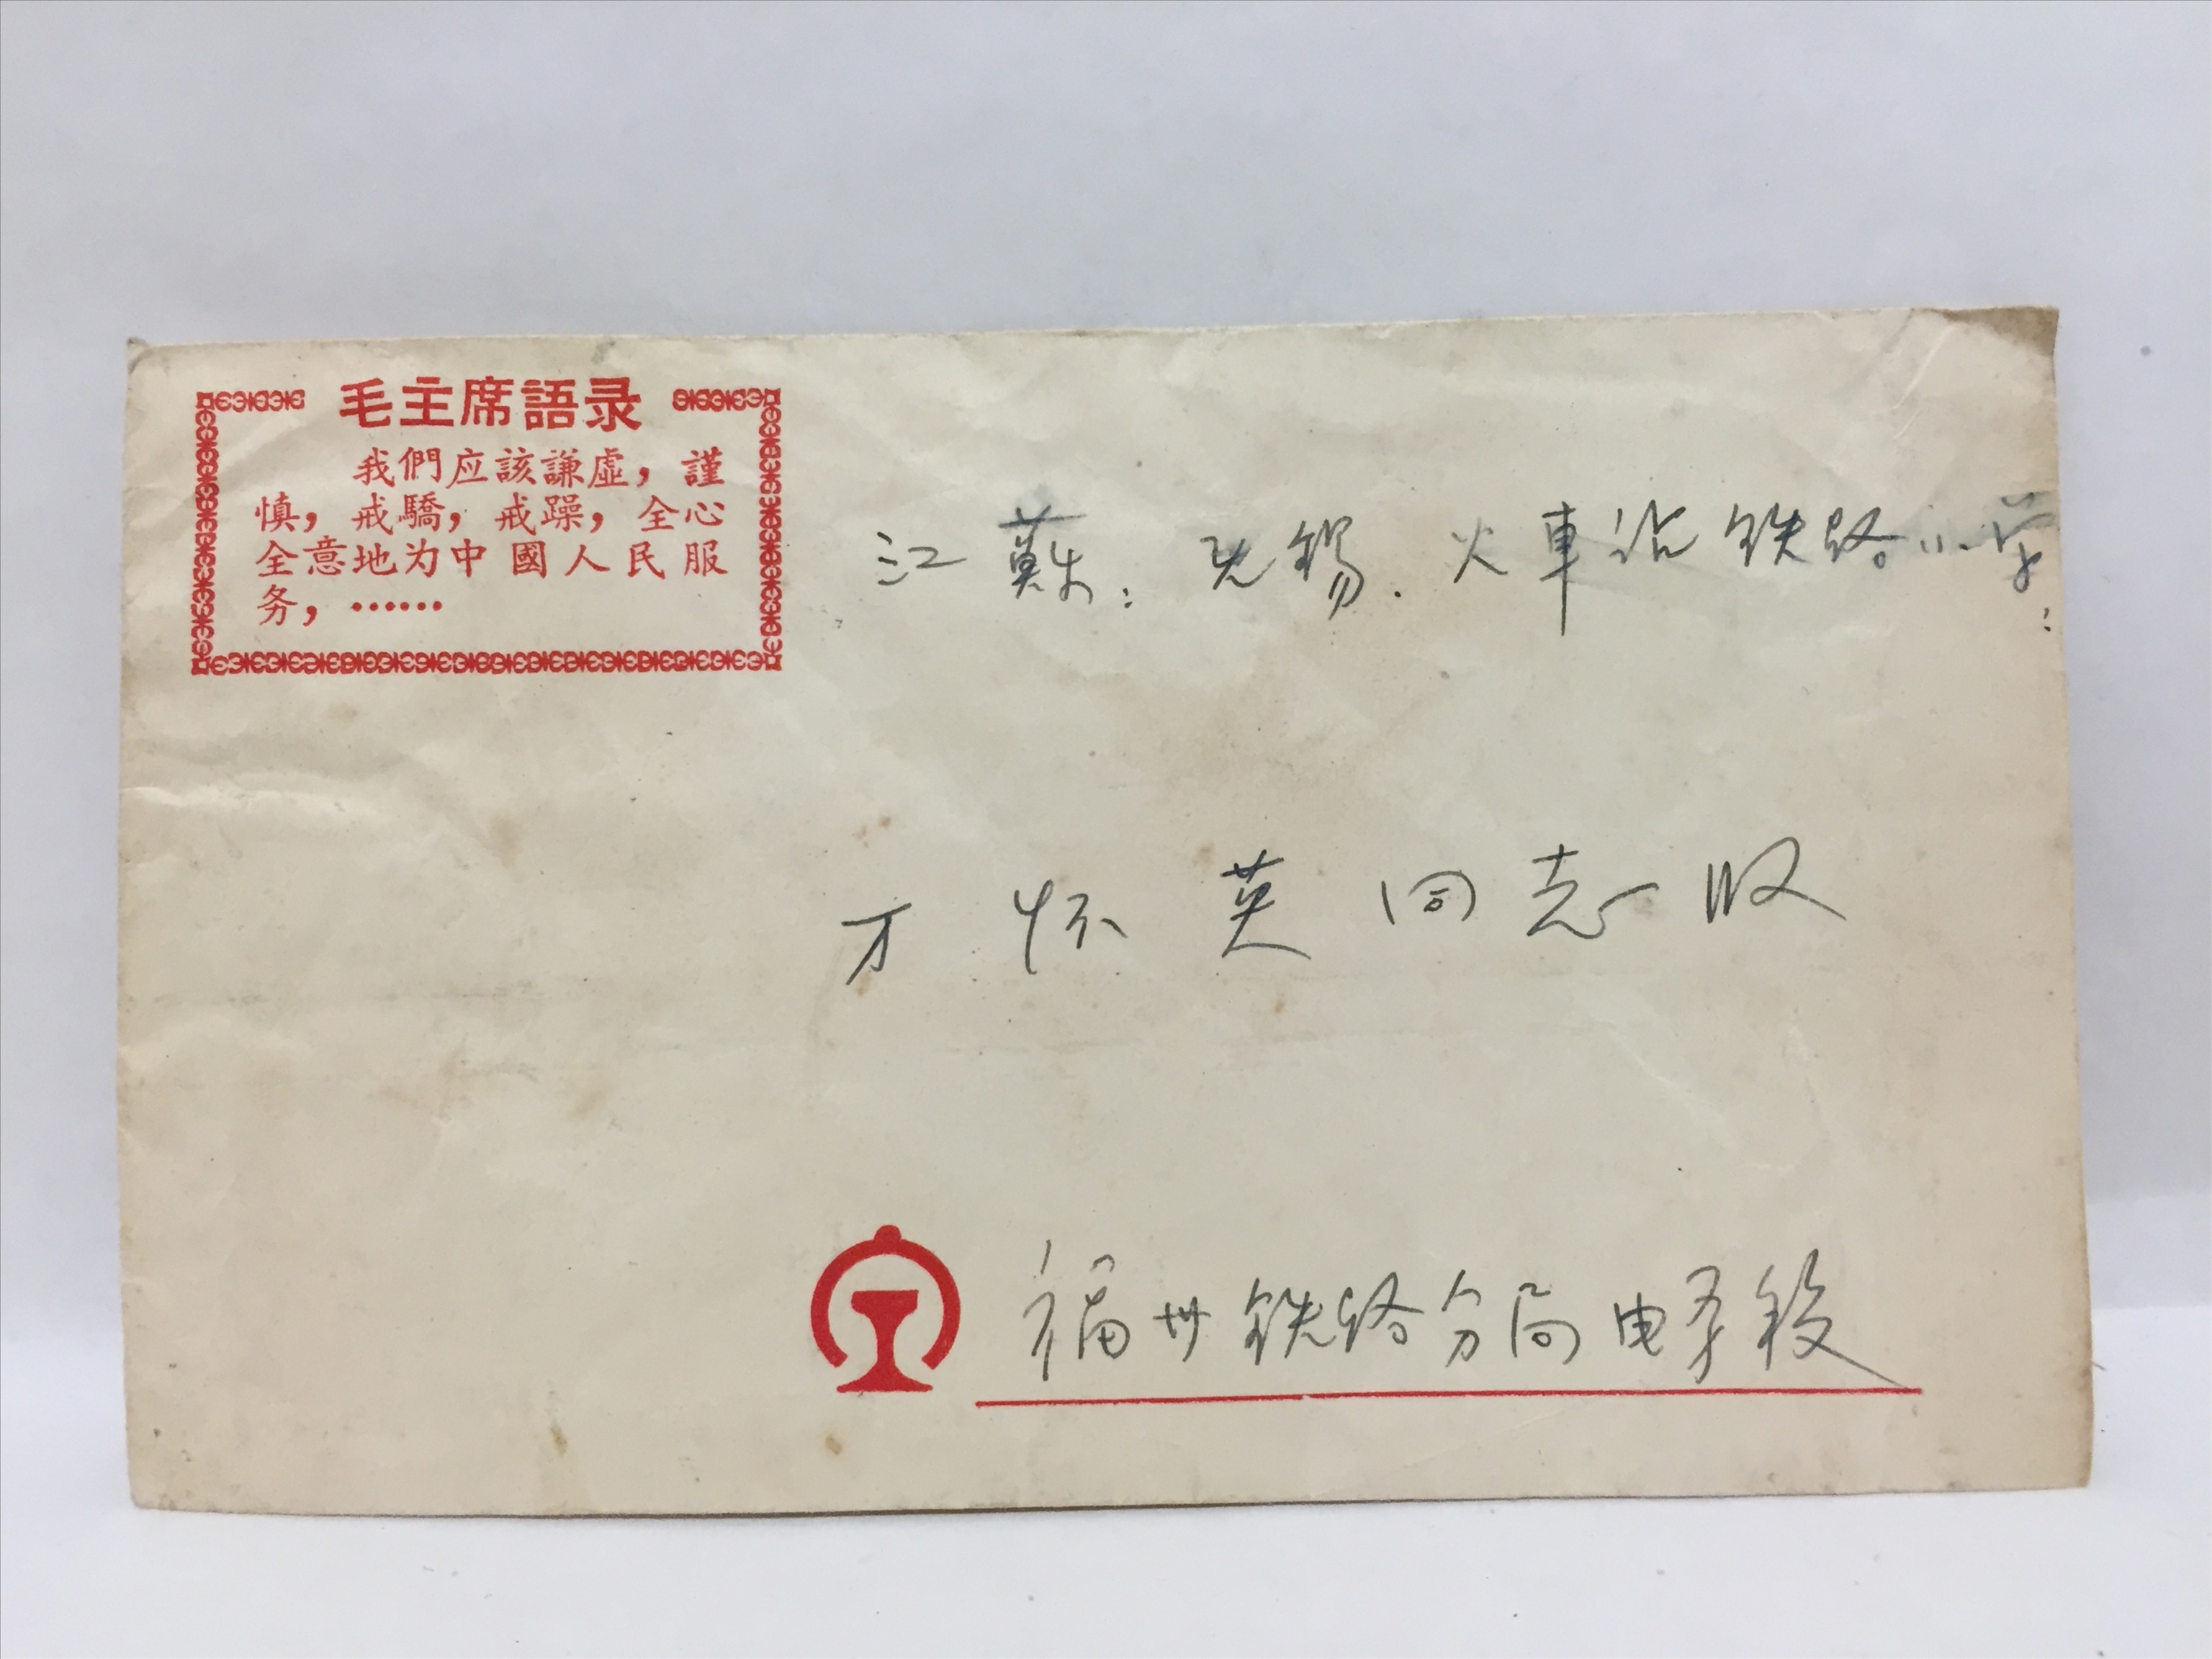 毛主席語录
我們应該謙虛，謹
慎，戒驕，戒躁，全心
全意地为中國人民服
务，……
江蘇：无錫．火車站铁路小学：
方怀英同志收
福州铁路分局电务段